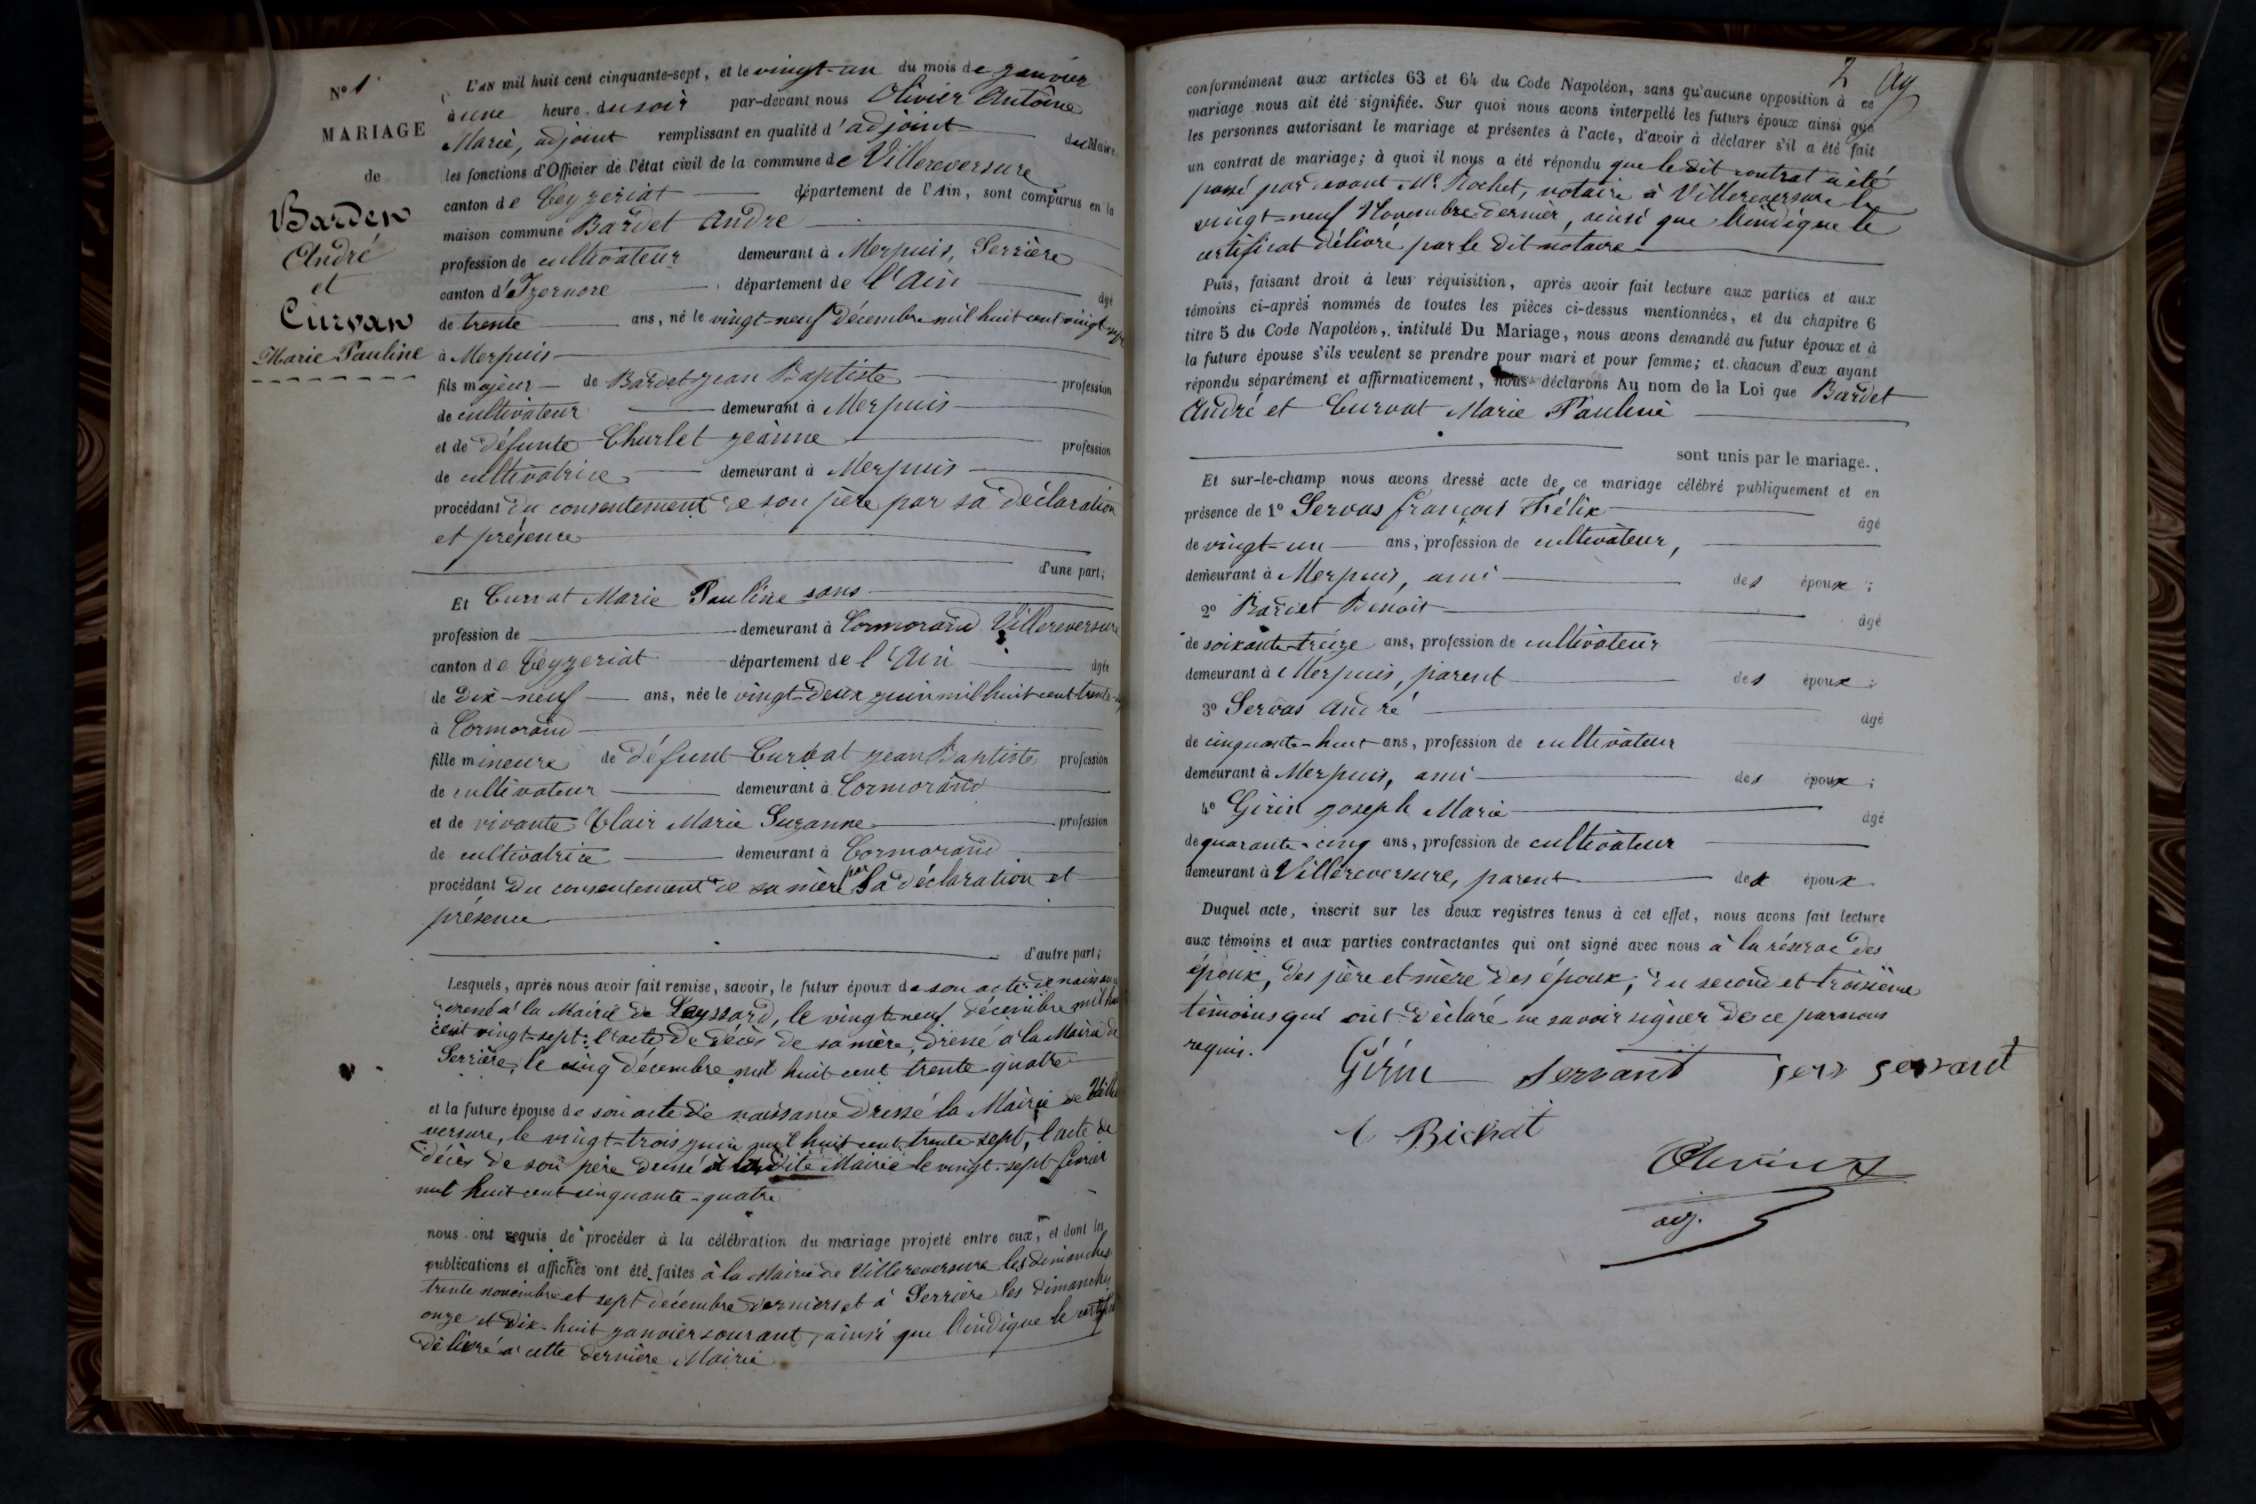 N° 1
MARIAGE
de
Bardet
André
et
Curvat
Marie Pauline
L'AN mil huit cent cinquante-sept, et le vingt-un du mois de janvier
à une heure du soir par-devant nous Olivier Antoine
Marie, adjoint remplissant en qualité d'adjoint du Maire
les fonctions d'Officier de l'état civil de la commune de Villereversure
canton de Ceyzeriat département de l'Ain, sont comparus en la
maison commune Bardet André
profession de cultivateur demeurant à Merpuis, Serrière
canton d'Izernore département de l'Ain âgé
de trente ans, né le vingt-neuf décembre mil huit cent vingt-sept
à Merpuis
fils majeur de Bardet jean Baptiste profession
de cultivateur demeurant à Merpuis
et de défunte Churlet jeanne profession
de cultivatrice demeurant à Merpuis
procédant du consentement de son père par sa déclaration
et présence
d'une part;
Et Curvat Marie Pauline sans
profession de demeurant à Cormorand Villereversure
canton de Ceyzeriat département de l'Ain âgée
de dix-neuf ans, née le vingt-deux juin mil huit cent trente
à Cormorand
fille mineure de défunt Curvat jean Baptiste profession
de cultivateur demeurant à Cormorand
et de vivante Clair Marie Suzanne profession
de cultivatrice demeurant à Cormorand
procédant du consentement de sa mère par sa déclaration et
présence
d'autre part;
Lesquels, après nous avoir fait remise, savoir, le futur époux de son acte de naissance
dressé à la Mairie de Leyssard, le vingt-neuf décembre mil huit
cent vingt-sept; l'acte de décès de sa mère, dressé à la Mairie de
Serrière, le cinq décembre mil huit cent trente-quatre
et la future épouse de son acte de naissance dressé la Mairie de Ville
versure, le vingt-trois juin mil huit cent trente-sept, l'acte de
décès de son père dressé à la dite Mairie le vingt-sept février
mil huit cent cinquante-quatre
nous ont requis de procéder à la célébration du mariage projeté entre eux, et dont les
publications et affiches ont été faites à la Mairie de Villereversure les dimanches
trente novembre et sept décembre derniers et à Serrière les dimanches
onze et dix-huit janvier courant, ainsi que l'indique le certificat
délivré à cette dernière Mairie
2
conformément aux articles 63 et 64 du Code Napoléon, sans qu'aucune opposition à ce
mariage nous ait été signifiée. Sur quoi nous avons interpellé les futurs époux ainsi que
les personnes autorisant le mariage et présentes à l'acte, d'avoir à déclarer s'il a été fait
un contrat de mariage; à quoi il nous a été répondu que le dit contrat a été
passé par devant Me Rochet, notaire à Villereversure le
vingt-neuf Novembre dernier, ainsi que l'indique le
certificat délivré par le dit notaire
Puis, faisant droit à leur réquisition, après avoir fait lecture aux parties et aux
témoins ci-après nommés de toutes les pièces ci-dessus mentionnées, et du chapitre 6
titre 5 du Code Napoléon, intitulé Du Mariage, nous avons demandé au futur époux et à
la future épouse s'ils veulent se prendre pour mari et pour femme; et chacun d'eux ayant
répondu séparément et affirmativement, nous déclarons Au nom de la Loi que Bardet
André et Curvat Marie Pauline
sont unis par le mariage.
Et sur-le-champ nous avons dressé acte de ce mariage célébré publiquement et en
présence de 1° Servas françois Félix âgé
de vingt-un ans, profession de cultivateur,
demeurant à Merpuis, ami des époux;
2° Bardet Benoit âgé
de soixante-treize ans, profession de cultivateur
demeurant à Merpuis, parent des époux;
3° Servas André âgé
de cinquante-huit ans, profession de cultivateur
demeurant à Merpuis, ami des époux;
4° Girin joseph Marie âgé
de quarante-cinq ans, profession de cultivateur
demeurant à Villereversure, parent des époux
Duquel acte, inscrit sur les deux registres tenus à cet effet, nous avons fait lecture
aux témoins et aux parties contractantes qui ont signé avec nous à la réserve des
époux, des père et mère des époux, du second et troisième
témoins qui ont déclaré ne savoir signer de ce par nous
requis.
Girin servant servant
Bichat
Olivier
adj.